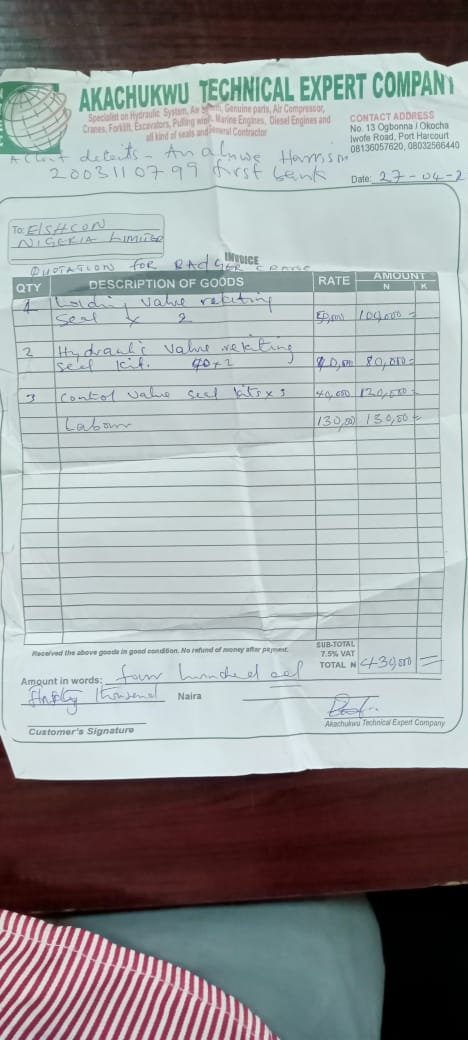 AKACHUKWU TECHNICAL EXPERT COMPANY
Specialist on Hydraulic System, Air System, Genuine parts, Air Compressor,
Cranes, Forklift, Excavators, Pulling work, Marine Engines, Diesel Engines and
all kind of seals and General Contractor
CONTACT ADDRESS
No. 13 Ogbonna / Okocha
Iwofe Road, Port Harcourt
08136057620, 08032566440
details - Harrison
2003110799 first bank
Date: 27-04-2
To: ELSHCON
NIGERIA LIMITED
INVOICE
QUOTATION FOR CRANE
QTY DESCRIPTION OF GOODS RATE AMOUNT
N K
1 Holding valve
seal x 2 50,000 100,000 =
2 Hydraulic valve
seal kit. 40 x 2 40,000 80,000 =
3 Control valve seal kits x 3 40,000 120,000 =
Labour 130,000 130,000 =
Received the above goods in good condition. No refund of money after payment.
SUB-TOTAL
7.5% VAT
TOTAL N 430,000 =
Amount in words: four hundred and
thousand Naira
Customer's Signature
Akachukwu Technical Expert Company